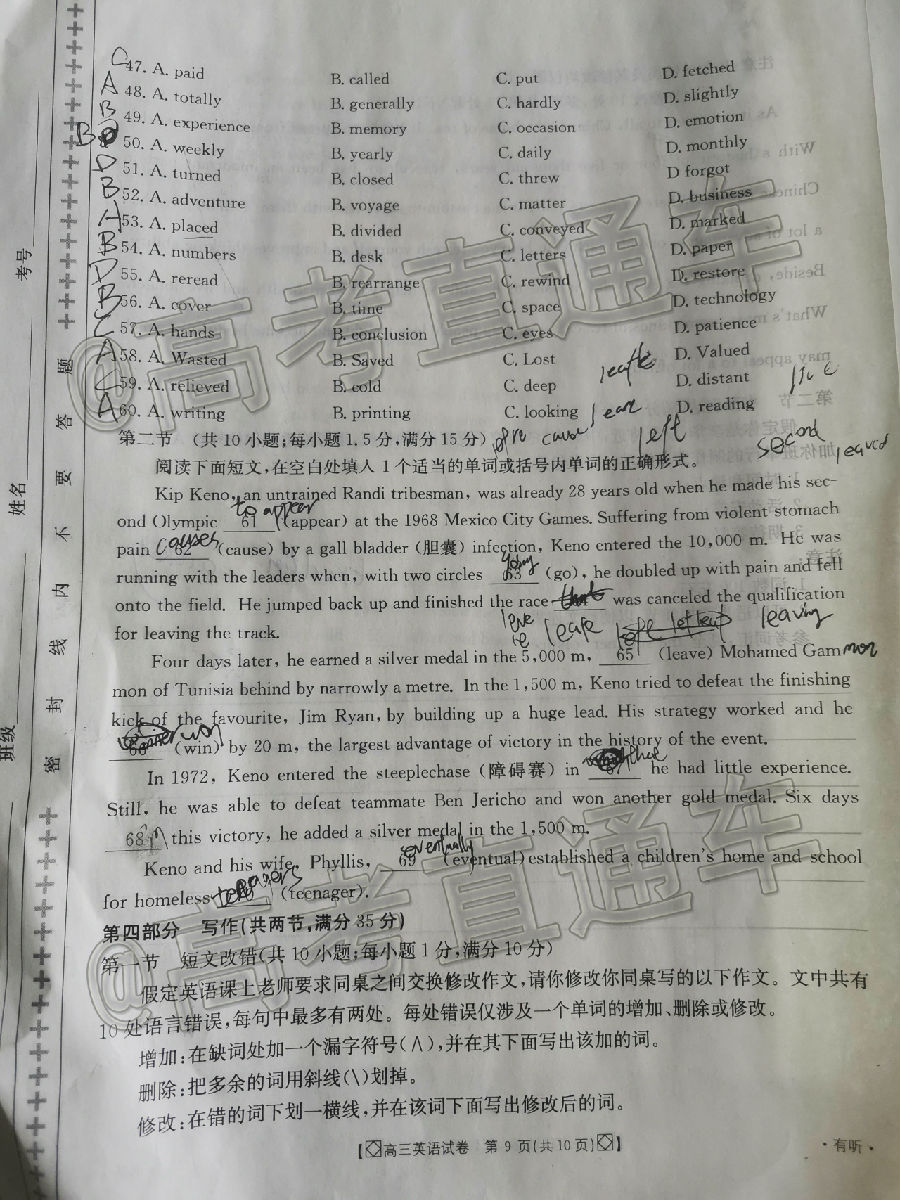 C 47. A. paid B. called C. put D. fetched
A 48. A. totally B. generally C. hardly D. slightly
B 49. A. experience B. memory C. occasion D. emotion
B 50. A. weekly B. yearly C. daily D. monthly
D 51. A. turned B. closed C. threw D forgot
B 52. A. adventure B. voyage C. matter D. business
A 53. A. placed B. divided C. conveyed D. marked
B 54. A. numbers B. desk C. letters D. paper
D 55. A. reread B. rearrange C. rewind D. restore
B 56. A. cover B. time C. space D. technology
C 57. A. hands B. conclusion C. eyes D. patience
A 58. A. Wasted B. Saved C. Lost D. Valued
C 59. A. relieved B. cold C. deep D. distant
A 60. A. writing B. printing C. looking D. reading
cause left second leaved
第二节 (共10小题;每小题1.5分,满分15分)
阅读下面短文,在空白处填入1个适当的单词或括号内单词的正确形式。
Kip Keno, an untrained Randi tribesman, was already 28 years old when he made his sec-
to appear
ond Olympic 61 (appear) at the 1968 Mexico City Games. Suffering from violent stomach
pain causes 62 (cause) by a gall bladder (胆囊) infection, Keno entered the 10,000 m. He was
running with the leaders when, with two circles going 63 (go), he doubled up with pain and fell
onto the field. He jumped back up and finished the race that was canceled the qualification
for leaving the track.
leaving
Four days later, he earned a silver medal in the 5,000 m, 65 (leave) Mohamed Gam-
mon of Tunisia behind by narrowly a metre. In the 1,500 m, Keno tried to defeat the finishing
kick of the favourite, Jim Ryan, by building up a huge lead. His strategy worked and he
66 (win) by 20 m, the largest advantage of victory in the history of the event.
In 1972, Keno entered the steeplechase (障碍赛) in 67 that he had little experience.
Still, he was able to defeat teammate Ben Jericho and won another gold medal. Six days
68 this victory, he added a silver medal in the 1,500 m.
eventually
Keno and his wife, Phyllis, 69 (eventual) established a children's home and school
for homeless (teenager).
第四部分 写作(共两节,满分35分)
第一节 短文改错(共10小题;每小题1分,满分10分)
假定英语课上老师要求同桌之间交换修改作文,请你修改你同桌写的以下作文。文中共有
10处语言错误,每句中最多有两处。每处错误仅涉及一个单词的增加、删除或修改。
增加:在缺词处加一个漏字符号(∧),并在其下面写出该加的词。
删除:把多余的词用斜线(\)划掉。
修改:在错的词下划一横线,并在该词下面写出修改后的词。
【高三英语试卷 第9页(共10页)】
·有听·
考号
姓名
班级
密 封 线 内 不 要 答 题
@高考直通车
@高考直通车